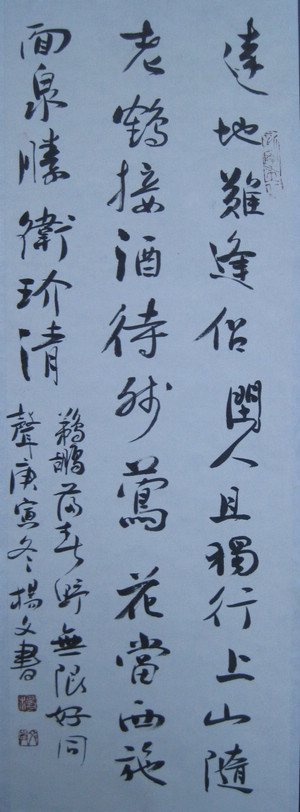 遠地難逢侶閒人且獨行上山隨
老鶴接酒待殘鶯花當西施
面泉勝衛玠清
鵜鶘滿春野無限好同
聲庚寅冬楊文書